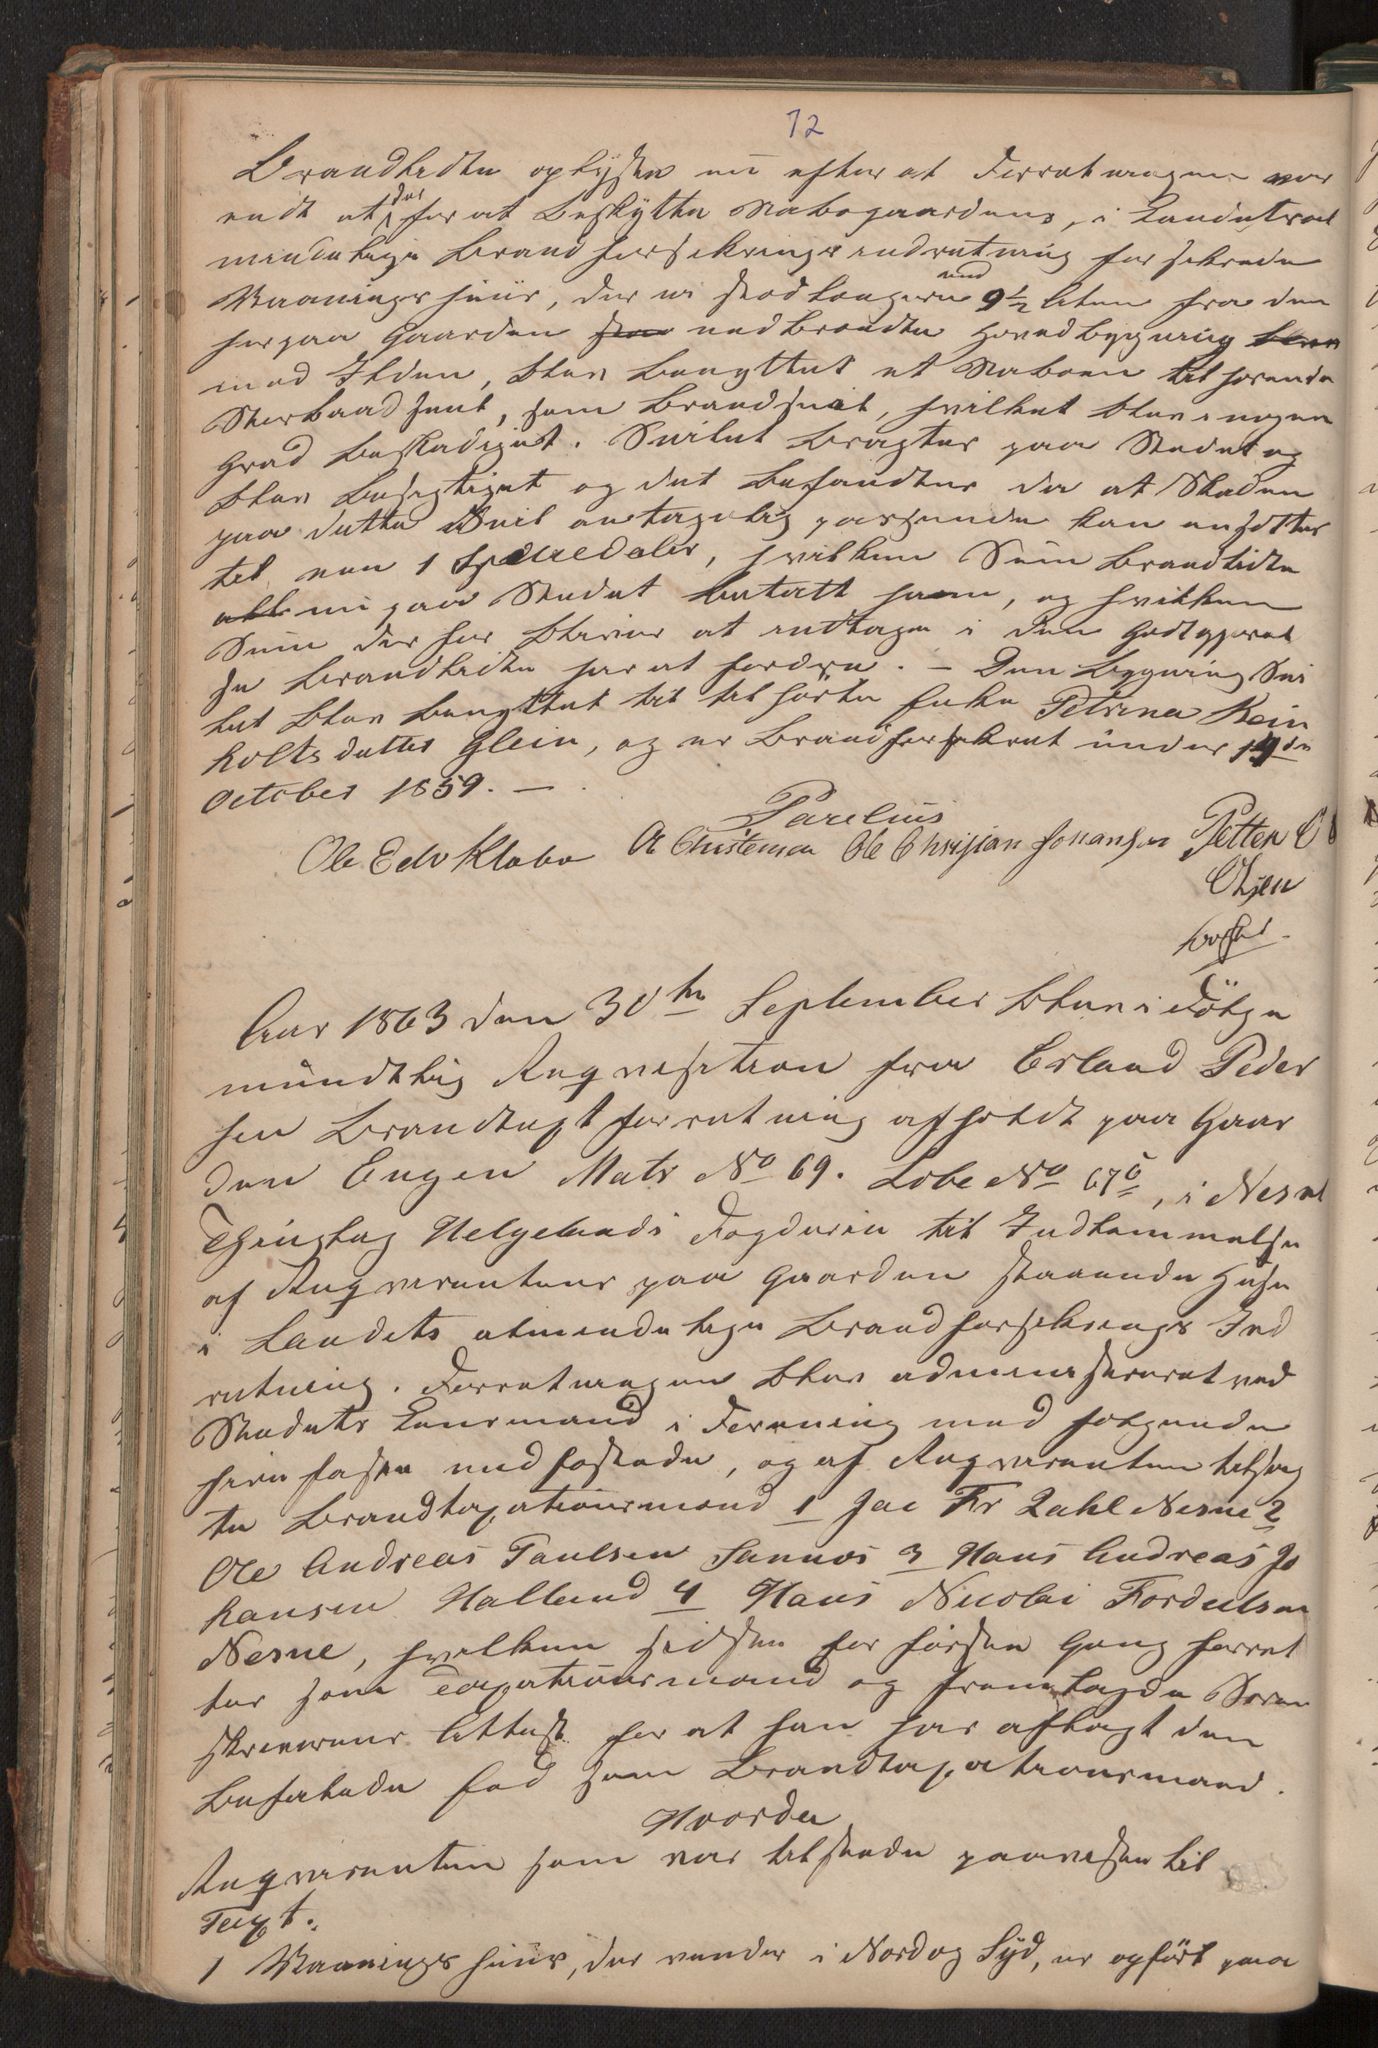 12
Brandlidte oplyste nu efter at Forretningen var
endt at der for at beskytte Nabogaardens, i Landets al
mindelige Brandforsikrings indretning forsikrede
Vaaningshuus, der er Stod længere end 9½ Alen fra den
her paa Gaarden nedbrændte Hovedbygning
mod Ilden, blev benyttet et Naboen tilhørende
Storbaadseil, som Brandseil, hvilket blev i nogen
Grad beskadiget. Seilet bragtes paa Stedet og
blev besigtiget og det befandtes da at Skaden
paa dette Seil antagelig passende kan ansættes
til een 1 Speciedaler, hvilken Sum Brandlidte
nu paa Stedet betalt ham, og hvilken
Sum derfor bliver at indtage i den Godtgjørel
se Brandlidte har at fordre. – Den bygning Sei
let blev benyttet til tilhørte Enke Petrina Rein
holtsdatter Glein, og er Brandforsikret under 19de
October 1859. –
Parelius
Ole Edv Klabo A Christensen Ole Chrisjian Johansen Petter O
Olsen
Aar 1863 den 30te September blev i Følge
mündtlig Reqvisition fra Erland Peder
sen Brandtaxtforretning afholdt paa Gaar
den Engen Matr No 69. Løbe No 67b, i Nesne
Thinglag Helgelands Fogderie til Indlemmelse
af Reqvirentens paa Gaarden staaende Huse
i Landets almindelige Brandforsikrings Ind
retning. Forretningen blev administreret ved
Stedets Lensmand i Forening med følgende
hertil faste edfæstede, og af Reqvirenten tilsag
te Brandtaxationsmænd 1 Jac Fr Zahl Nesne 2
Ole Andreas Paulsen Sannes 3 Hans Andreas Jo
hansen Halland 4 Hans Nicolai Fordelsen
Nesne, hvilken sidste for første Gang forret
ter som Taxationsmand og fremlagde Soren
skriverens Attest for at han har aflagt den
befalede Eed som Brandtaxationsmand.
Hvorda
Reqvirenten som var tilstede paaviste til
Taxt.
1 Vaaningshuus, der vender i Nord og Syd, er opført paa